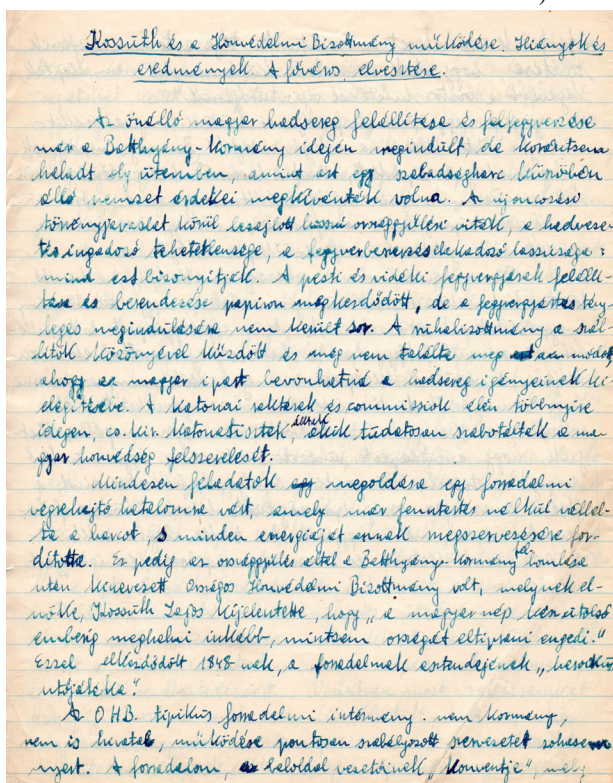 Kossuth és a Honvédelmi Bizottmány működése. Hiányok és
eredmények. A főváros elvesztése.
Az önálló magyar hadsereg felállítása és felfegyverzése
már a Batthyány-kormány idején megindult, de korántsem
haladt oly ütemben, amint azt egy szabadságharc küszöbén
álló nemzet érdekei megkívánták volna. Az újoncozási
törvényjavaslat körül lezajlott hosszú országgyűlési viták, a hadveze-
tés ingadozó tehetetlensége, a fegyverbeszerzés elakadozó lassúsága:
mind ezt bizonyítják. A pesti és vidéki fegyvergyárak felállí-
tása és berendezése papiron megkezdődött, de a fegyvergyártás tény-
leges megindulására nem került sor. A ruhabizottmány a szál-
lítók közönyével küzdött és még nem találta meg azt a módot,
ahogy az magyar ipart bevonhatná a hadsereg igényeinek ki
elégítésébe. A katonai raktárak és commissiók élén többnyire
idegen, cs. kir. katonatisztek álltak, akik tudatosan szabotálták a ma-
gyar honvédség felszerelését.
Mindezen feladatok megoldása egy forradalmi
végrehajtó hatalomra várt, amely már fenntartás nélkül vállal-
ta a harcot, s minden energiáját ennek megszervezésére for-
dította. Ez pedig az országgyűlés által a Batthyány-kormány felbomlása
után kinevezett Országos Honvédelmi Bizottmány volt, melynek el-
nöke, Kossuth Lajos kijelentette, hogy „a magyar nép kész utolsó
emberig meghalni inkább, mintsem országát eltiporni engedi."
Ezzel elkezdődött 1848-nak, a forradalmak esztendejének „heroikus
utójátéka."
Az O.H.B. tipikus forradalmi intézmény. nem kormány,
nem is hivatal, működése pontosan szabályozott szervezetet sohasem
nyert. A forradalom, baloldal vezetőinek „konventje", mely